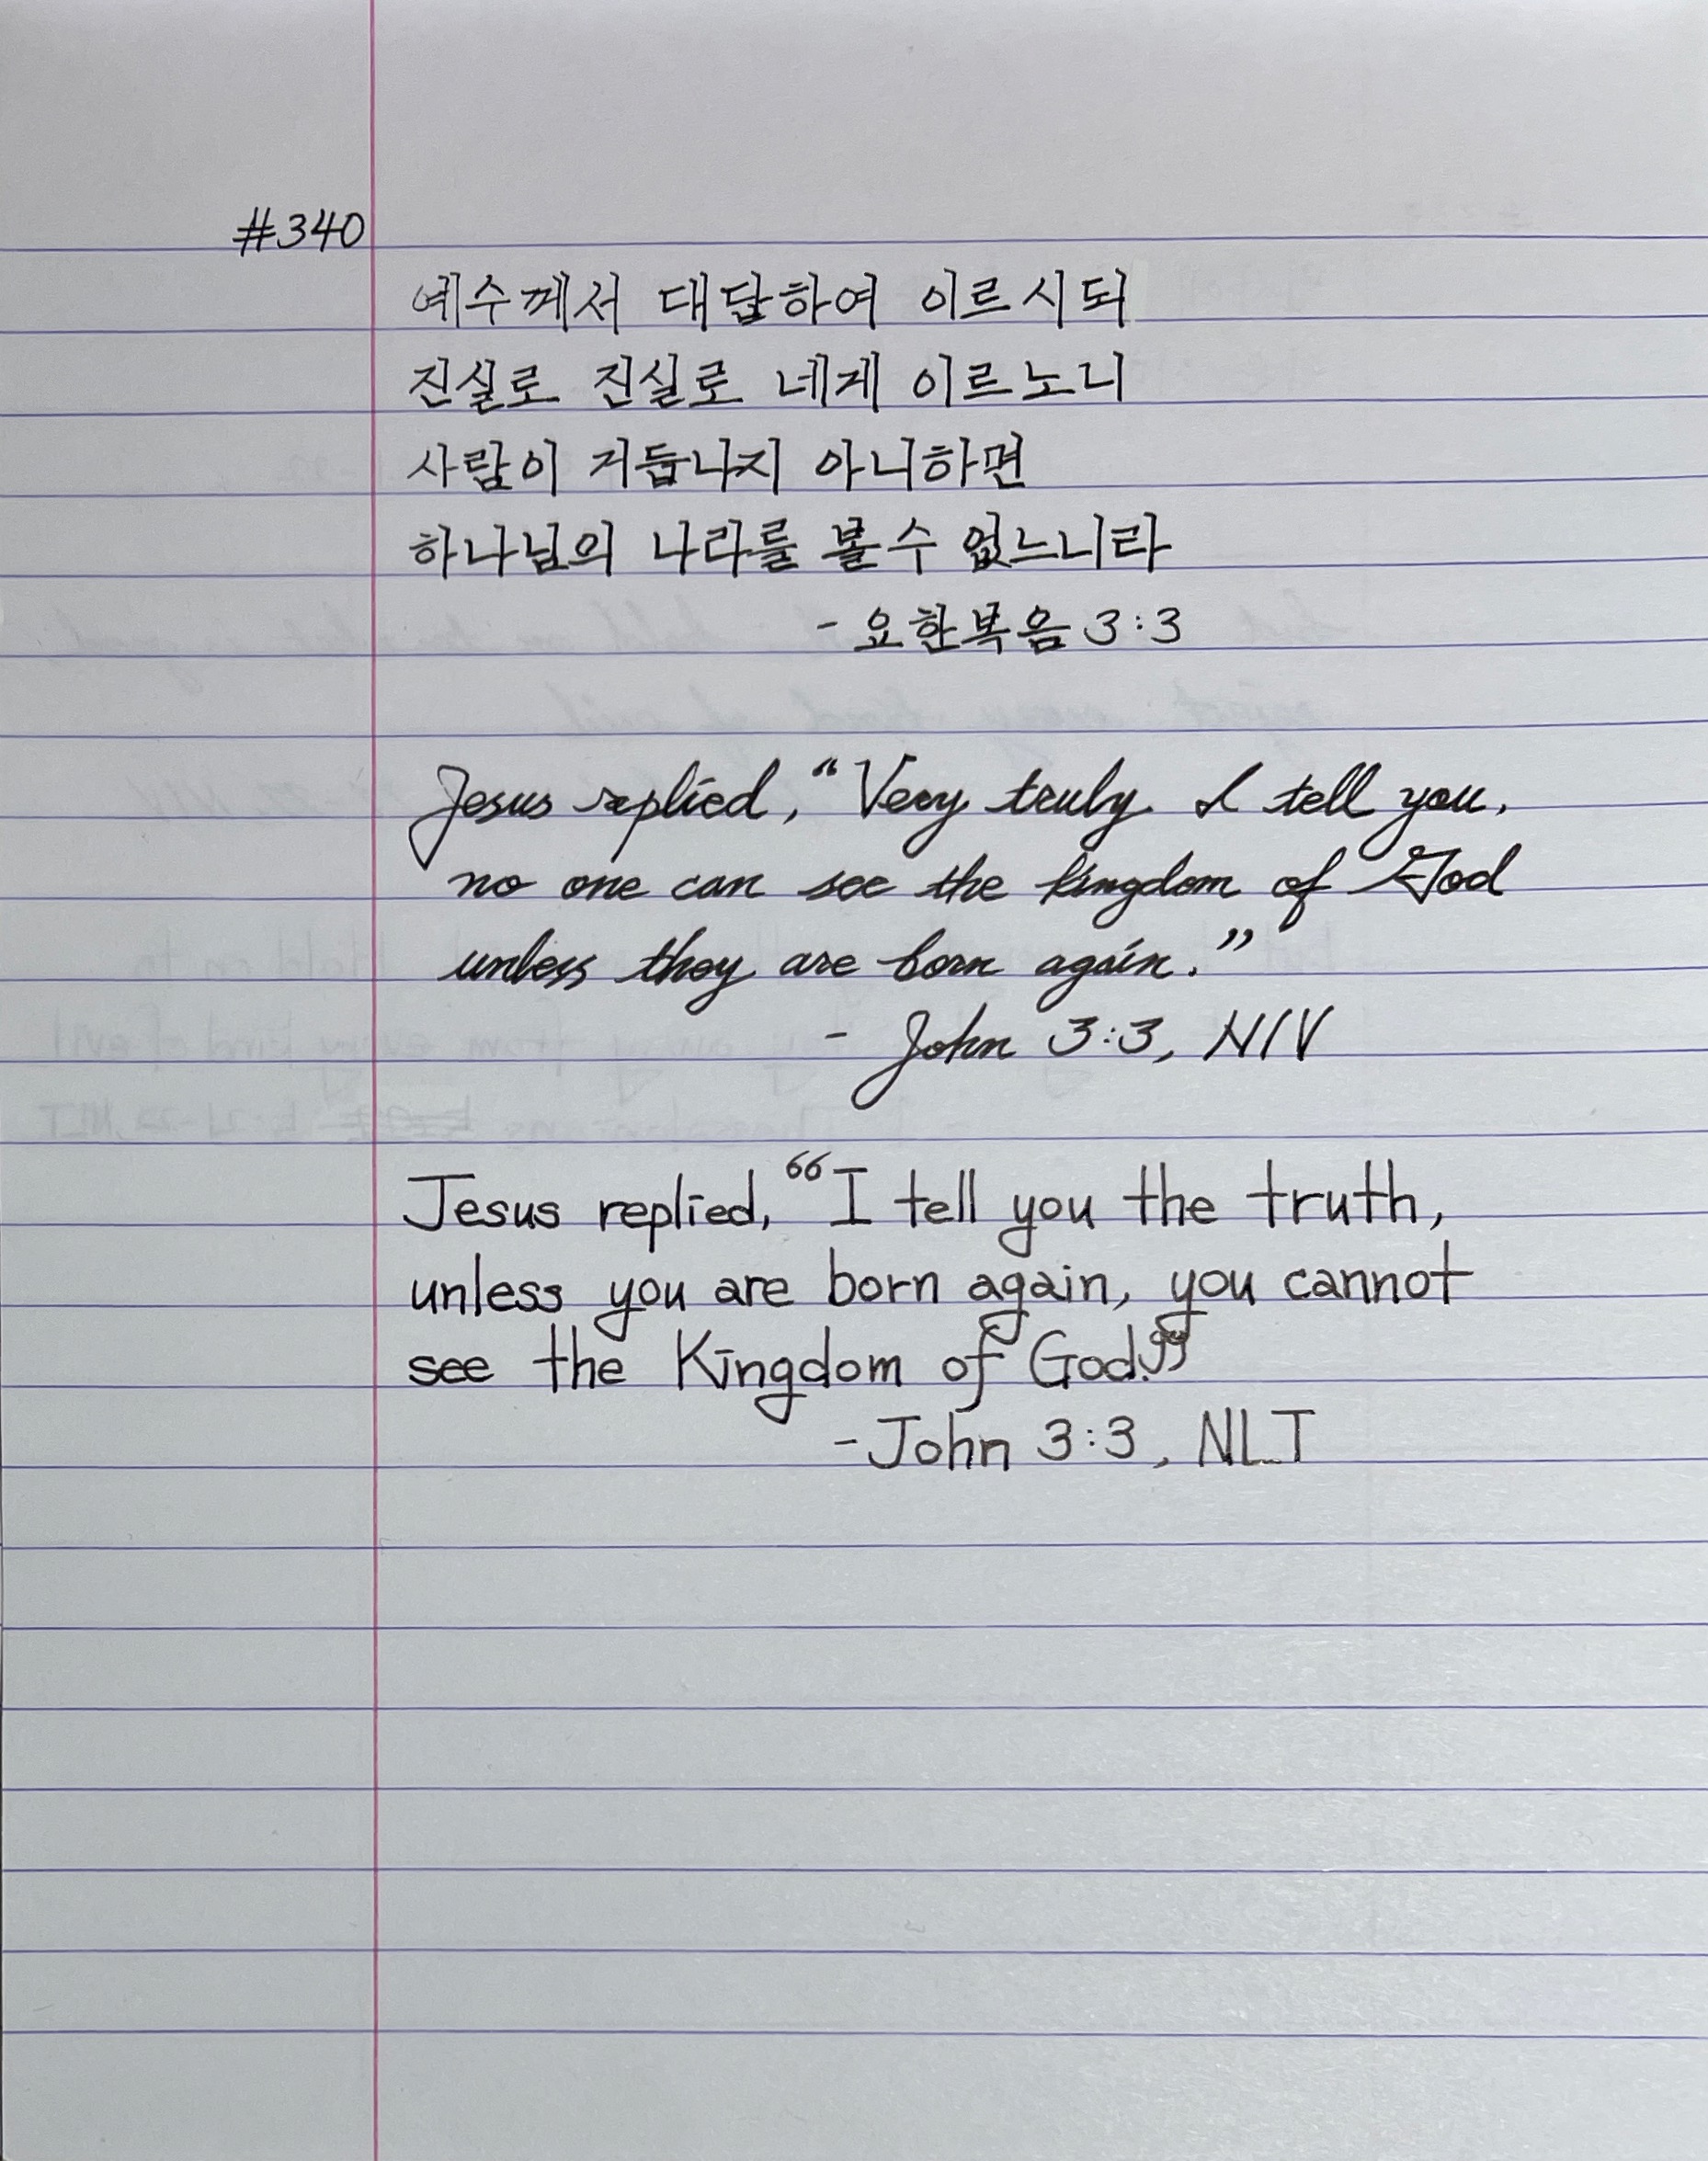 #340
예수께서 대답하여 이르시되
진실로 진실로 네게 이르노니
사람이 거듭나지 아니하면
하나님의 나라를 볼 수 없느니라
- 요한복음 3:3
Jesus replied, “Very truly I tell you,
no one can see the kingdom of God
unless they are born again.”
- John 3:3, NIV
Jesus replied, “I tell you the truth,
unless you are born again, you cannot
see the Kingdom of God.”
- John 3:3, NLT